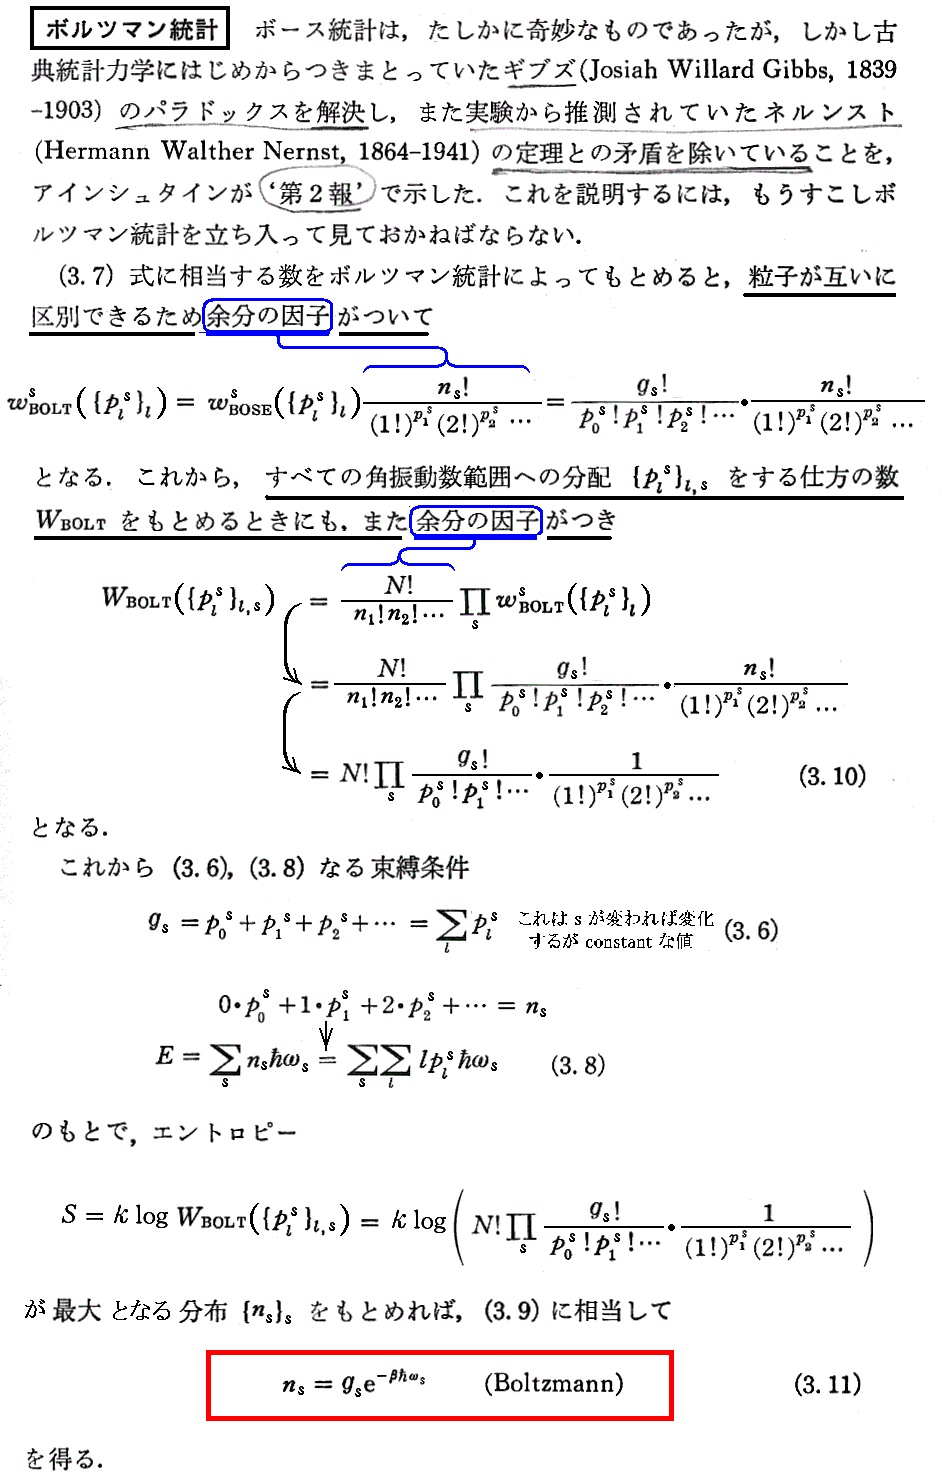 ボルツマン統計 ボース統計は，たしかに奇妙なものであったが，しかし古
典統計力学にはじめからつきまとっていたギブズ(Josiah Willard Gibbs, 1839
-1903) のパラドックスを解決し，また実験から推測されていたネルンスト
(Hermann Walther Nernst, 1864-1941) の定理との矛盾を除いていることを，
アインシュタインが‘第2報’で示した．これを説明するには，もうすこしボ
ルツマン統計を立ち入って見ておかねばならない．
(3.7) 式に相当する数をボルツマン統計によってもとめると，粒子が互いに
区別できるため余分の因子がついて
w^s_BOLT({p_l^s}_l) = w^s_BOSE({p_l^s}_l) n_s!/((1!)^{p_1^s}(2!)^{p_2^s}…) = g_s!/(p_0^s!p_1^s!p_2^s!…)・n_s!/((1!)^{p_1^s}(2!)^{p_2^s}…)
となる．これから，すべての角振動数範囲への分配 {p_l^s}_{l,s} をする仕方の数
W_BOLT をもとめるときにも，また余分の因子がつき
W_BOLT({p_l^s}_{l,s}) = N!/(n_1!n_2!…) ∏_s w^s_BOLT({p_l^s}_l)
= N!/(n_1!n_2!…) ∏_s g_s!/(p_0^s!p_1^s!p_2^s!…)・n_s!/((1!)^{p_1^s}(2!)^{p_2^s}…)
= N!∏_s g_s!/(p_0^s!p_1^s!…)・1/((1!)^{p_1^s}(2!)^{p_2^s}…) (3.10)
となる．
これから (3.6), (3.8) なる束縛条件
g_s = p_0^s + p_1^s + p_2^s + … = ∑_l p_l^s これは s が変われば変化 (3.6)
するが constant な値
0・p_0^s + 1・p_1^s + 2・p_2^s + … = n_s
E = ∑_s n_sħω_s = ∑_s∑_l lp_l^sħω_s (3.8)
のもとで，エントロピー
S = k log W_BOLT({p_l^s}_{l,s}) = k log(N!∏_s g_s!/(p_0^s!p_1^s!…)・1/((1!)^{p_1^s}(2!)^{p_2^s}…))
が最大となる分布 {n_s}_s をもとめれば，(3.9) に相当して
n_s = g_s e^{-βħω_s} (Boltzmann) (3.11)
を得る．